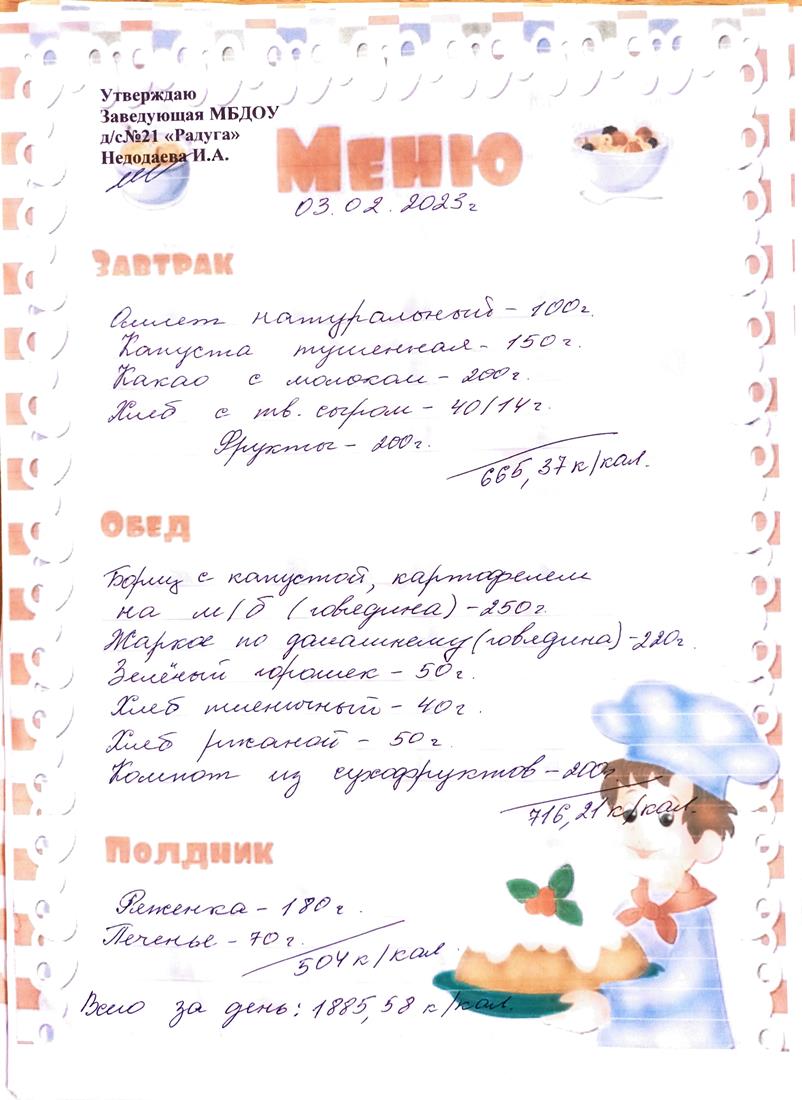 Утверждаю
Заведующая МБДОУ
д/с№21 «Радуга»
Недодаева И.А.
Меню
03.02.2023г
Завтрак
Омлет натуральный - 100г.
Капуста тушенная - 150г.
Какао с молоком - 200г.
Хлеб с тв. сыром - 40/14г.
Фрукты - 200г.
665,37 к/кал.
Обед
Борщ с капустой, картофелем
на м/б (говядина) - 250г.
Жаркое по домашнему (говядина) - 220г.
Зелёный горошек - 50г.
Хлеб пшеничный - 40г.
Хлеб ржаной - 50г.
Компот из сухофруктов - 200г
716,21 к/кал.
Полдник
Ряженка - 180г.
Печенье - 70г.
504 к/кал.
Всего за день: 1885,58 к/кал.